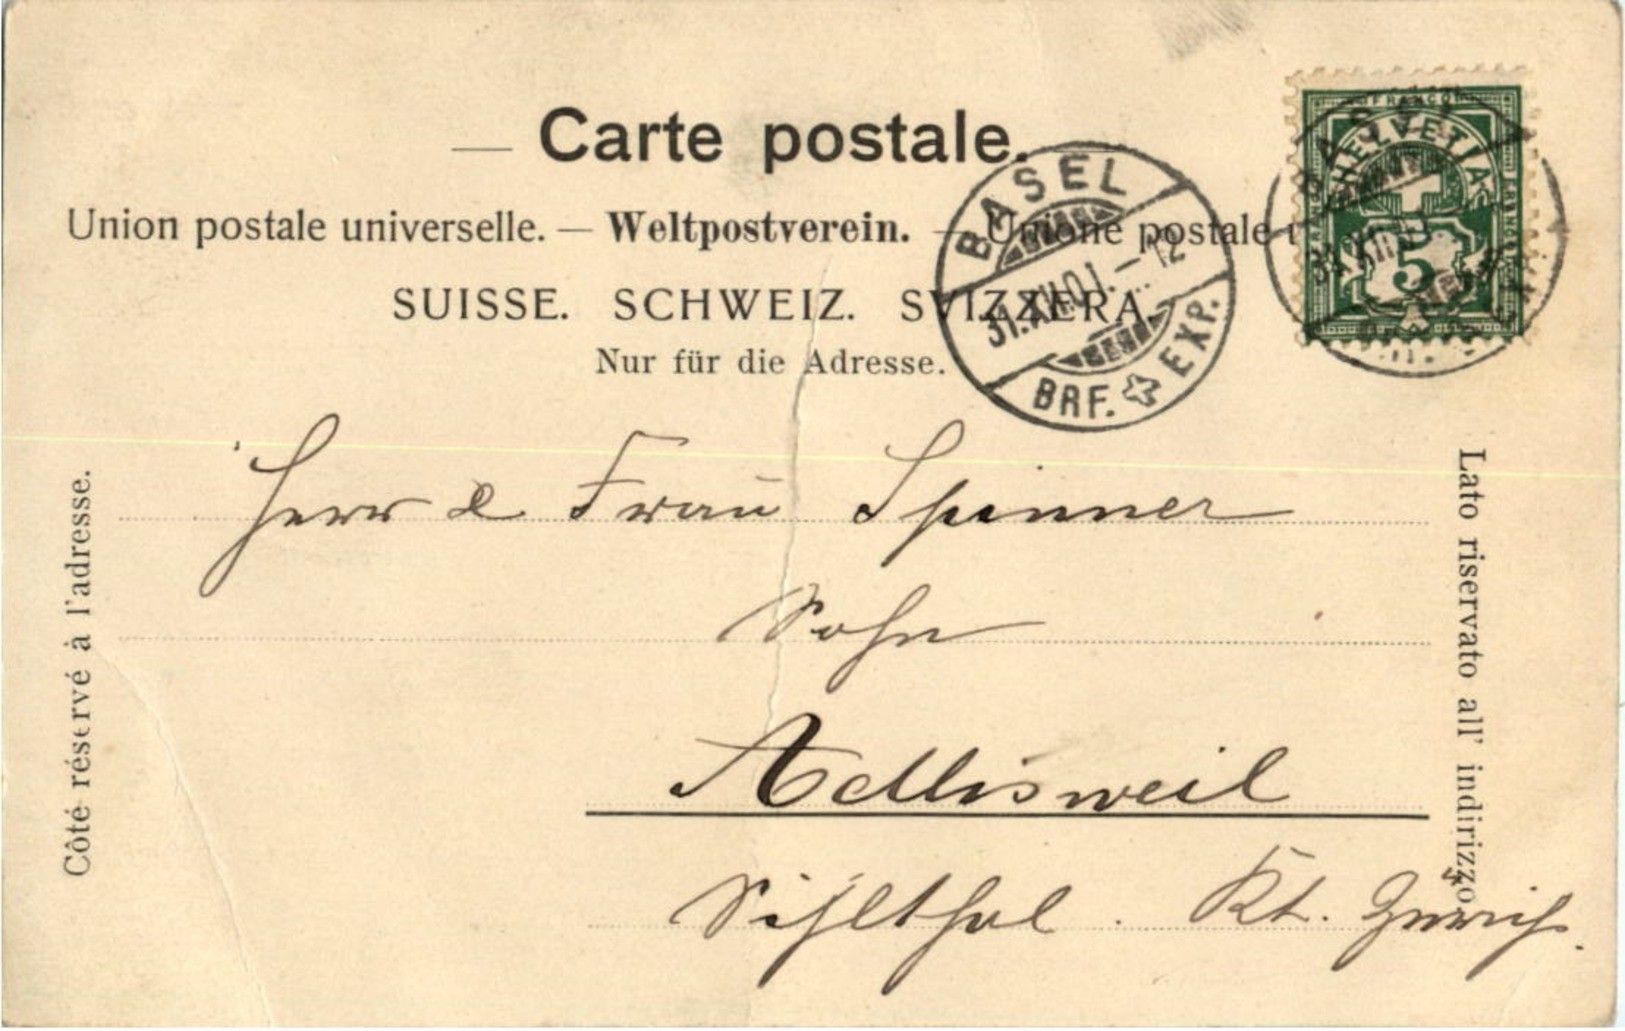 — Carte postale.
Union postale universelle. — Weltpostverein. — Unione postale
SUISSE. SCHWEIZ. SVIZZERA.
Nur für die Adresse.
BASEL
31.XII.01.–12
BRF. EXP.
FRANCO
HELVETIA
5
Herr & Frau Spinner
Sohn
Adlisweil
Sihlthal. Kt. Zürich.
Côté réservé à l'adresse.
Lato riservato all' indirizzo